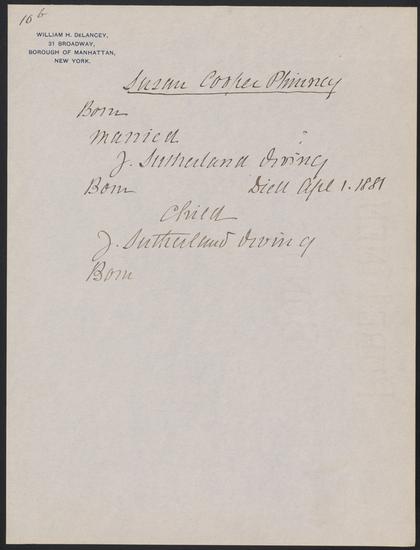 10 6
WILLIAM H. DELANCEY,
31 BROADWAY,
BOROUGH OF MANHATTAN,
NEW YORK.
Susan Cooper Phinney
Born
Married
J. Sutherland Irving
Born Died Apl 1. 1881
Child
J. Sutherland Irving
Born